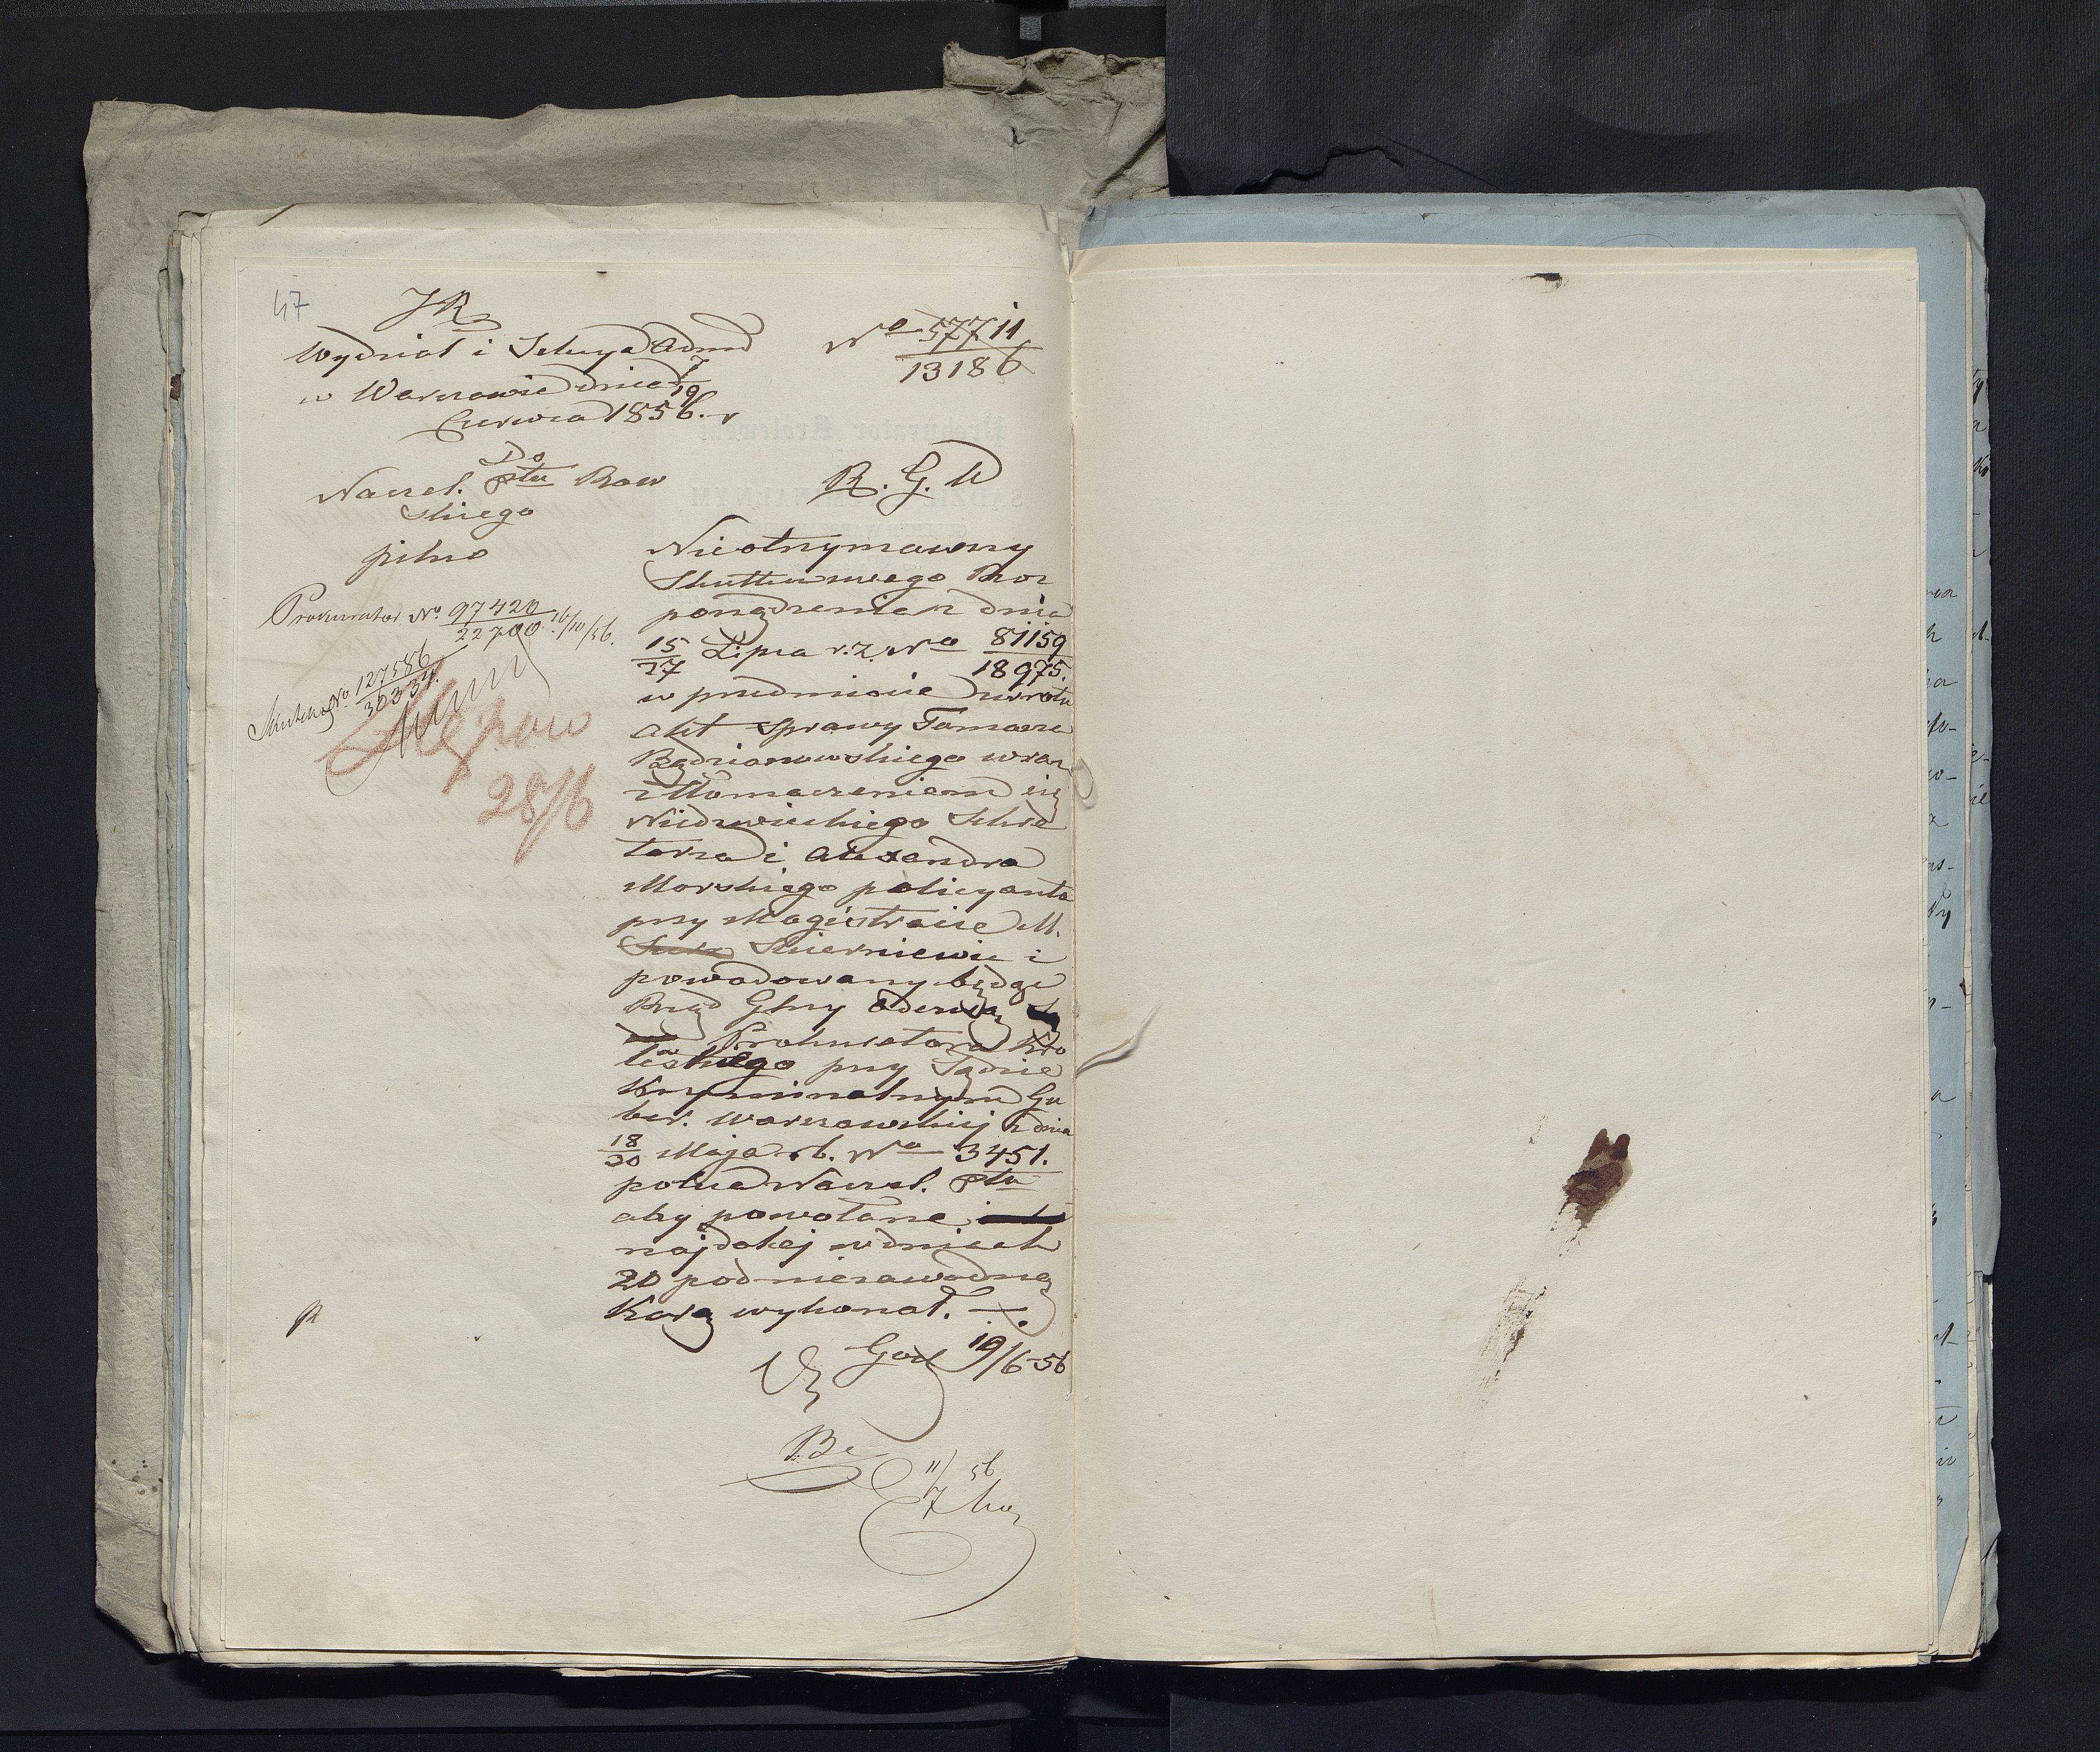 47
JR
Wydział i Sekcya Adm
w Warszawie dnia 7/19
Czerwca 1856. r
No 57711/13186
Do
Naczel. Ptu Raw
skiego
pilno
Prokurator No. 97420/22700 16/10/56.
Skutek No. 127586/30334.
28/6
R. G. W
Nieotrzymawszy
Skutku swego Roz
porządzenia z dnia
15/27 Lipca r. z. No 81159/18975.
w przedmiocie zwrotu
akt sprawy Tomasza
Bądzianowskiego wraz
z tłomaczeniem się
Niedzwieckiego Sekre
tarza i Alexandra
Morskiego policyanta
przy Magistracie M.
Skierniewic i
powodowany będąc
Rząd Gbny odezwą
Prokuratora Kró
lewskiego przy Sądzie
Kryminalnym Gu
ber. Warszawskiej z dnia
18/30 Maja r. b. No 3451.
poleca Naczel. Ptu
aby powołane
najdalej w dniach
20 pod niezawodną
Karą wykonał.
God 19/6-56
Be
11/7 56